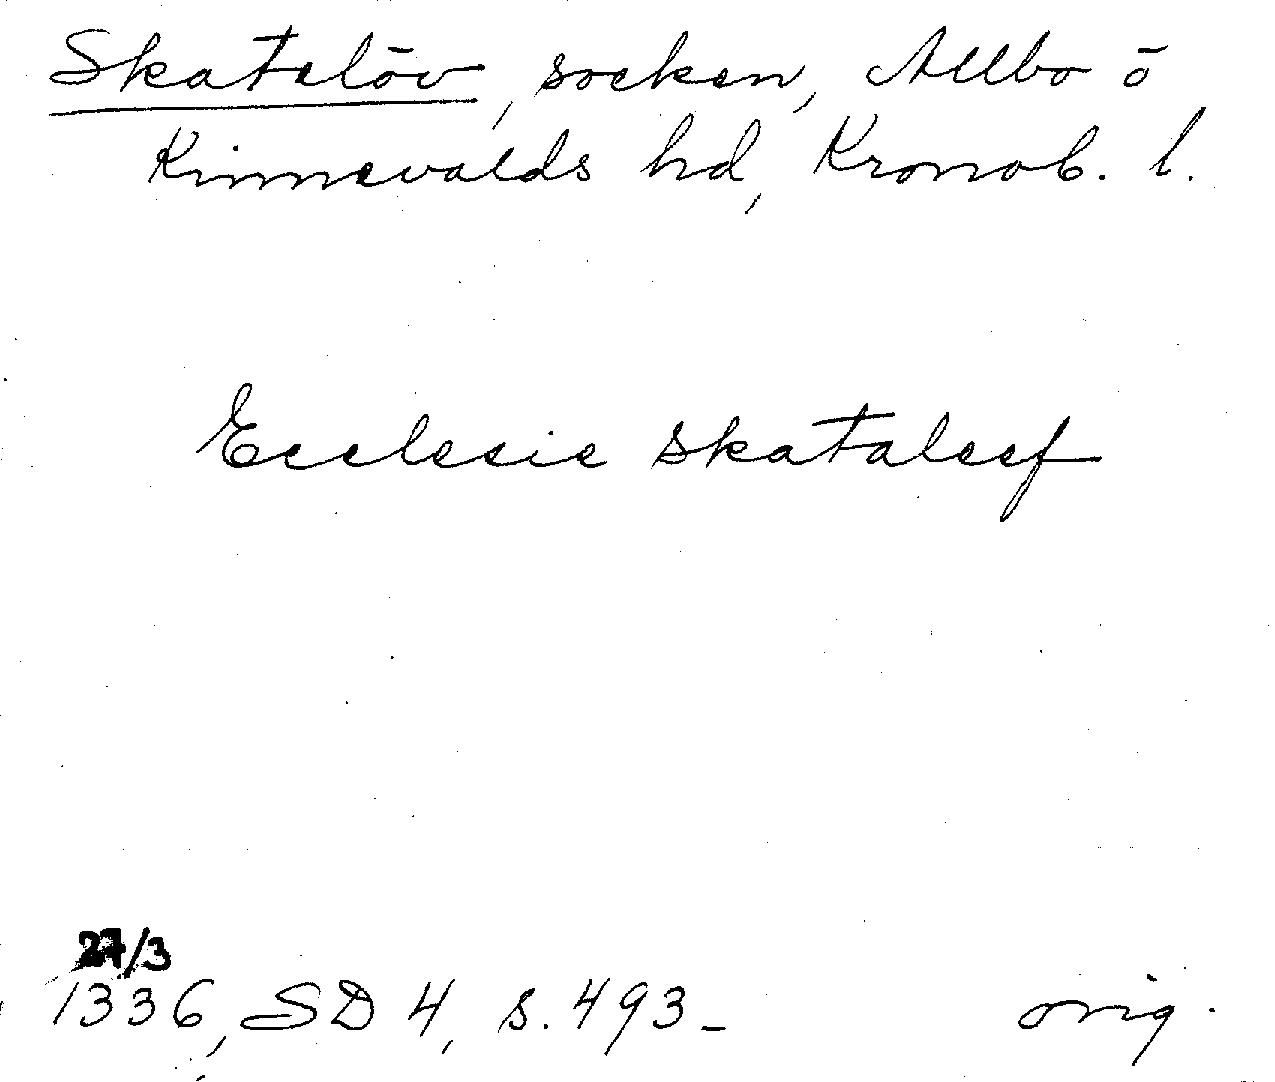 Skatelöv, socken, Allbo ö
Kinnevalds hd, Kronob. l.
Ecclesie skataleef
27/3
1336, SD 4, s. 493_
orig.